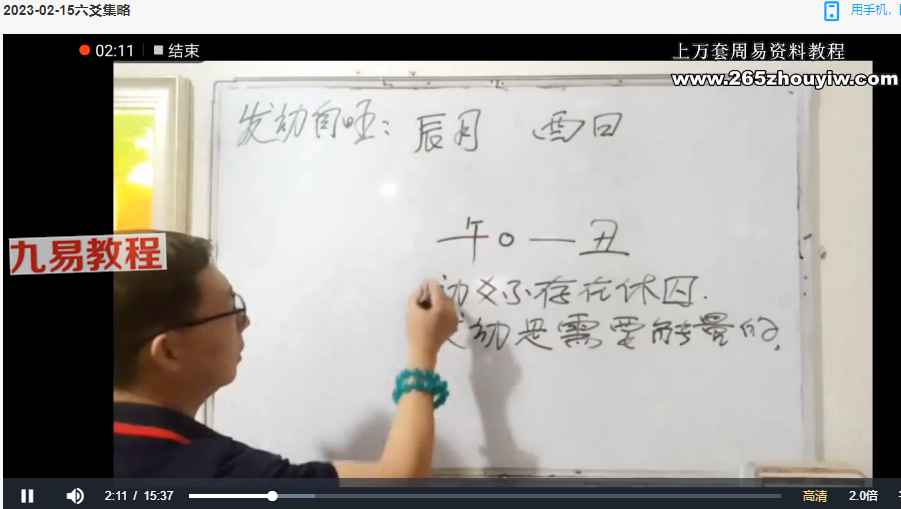 2023-02-15六爻集略
用手机
02:11 结束
上万套周易资料教程
www.265zhouyiw.com
发动自旺：辰月 酉日
九易教程
午○—丑
动爻不存在休囚.
发动是需要能量的.
2:11 / 15:37
高清 2.0倍